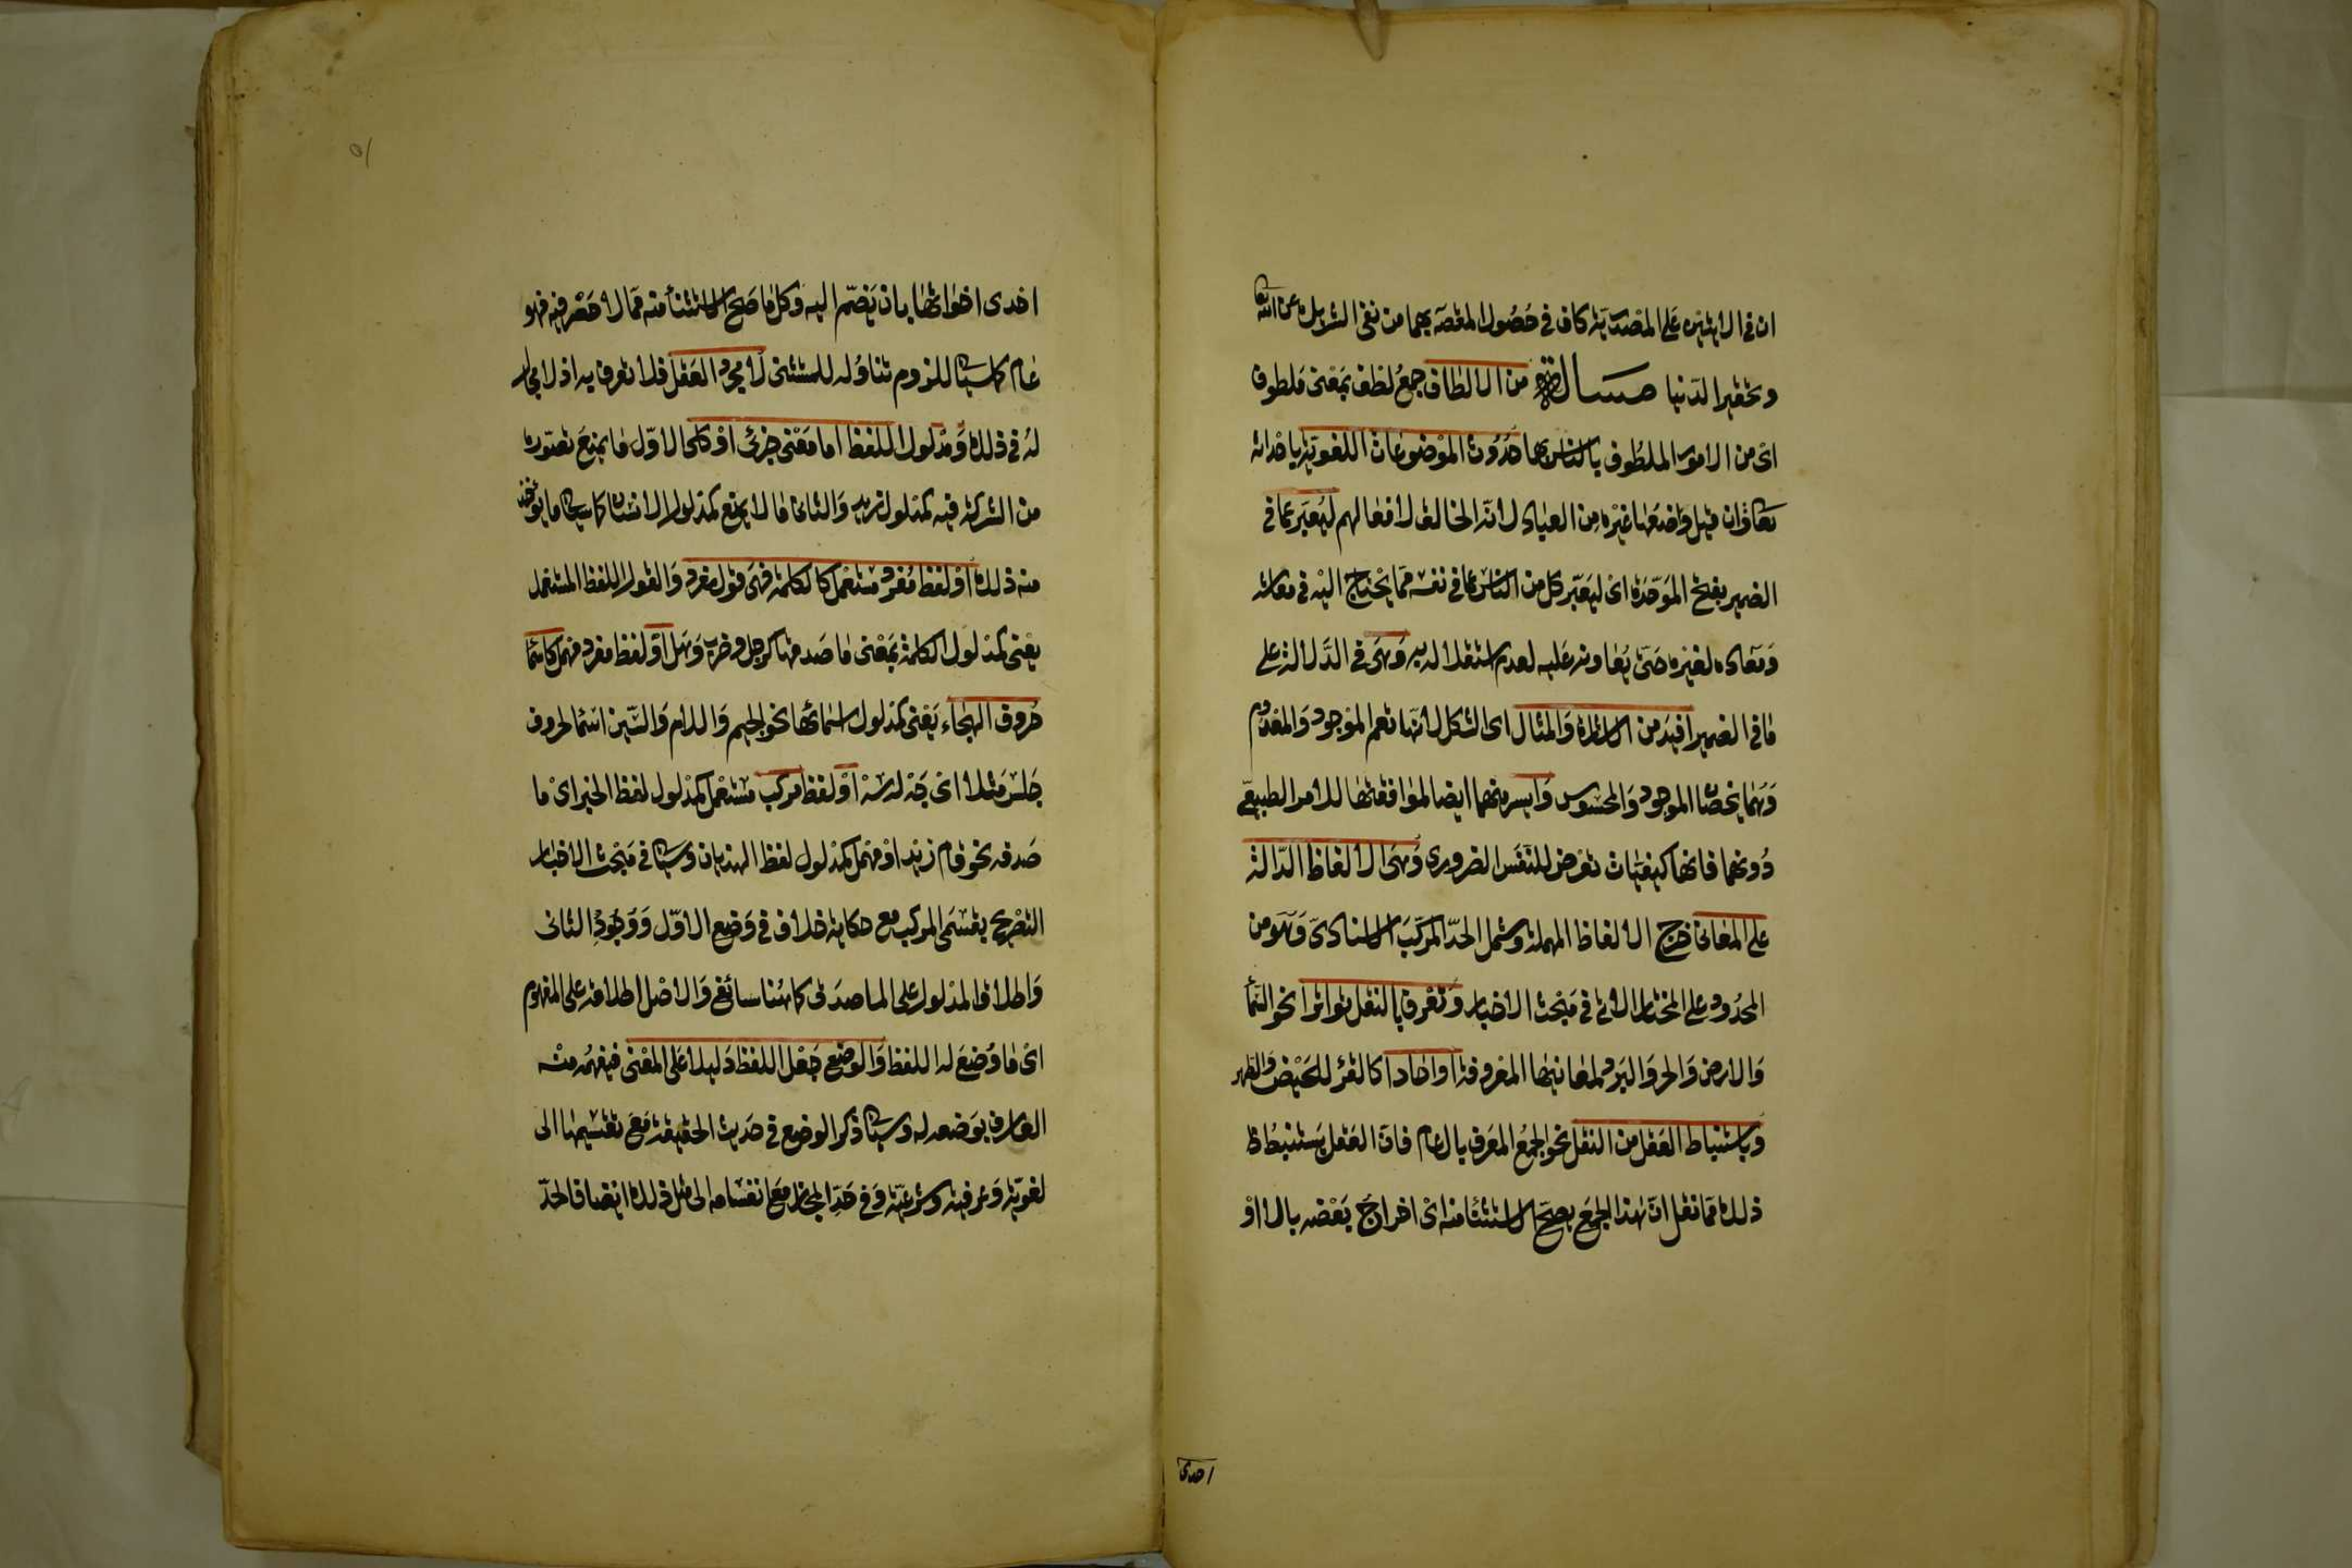 ان فى الايتين على المصدرية كاف فى حصول المقصد بهما من نفى الشريك عن الله تعا
وتحقير الدنيا مسالة من الالطاف جمع لطف بمعنى ملطوف
اى من الامور الملطوف بالناس بها حدوث الموضوعات اللغوية باحداثه
تعا وان قيل واضعها غيره من العباد لانه الخالق لافعالهم ليعبر عما فى
الضمير بفتح الموحدة اى ليعبر كل من الناس عما فى نفسه مما يحتاج اليه فى معاشه
ومعاده لغيره حتى يعاونه عليه لعدم استقلاله به وهى فى الدلالة على
ما فى الضمير افيد من الاشارة والمثال اى الشكل لانها تعم الموجود والمعدوم
وهما يخصان الموجود والمحسوس وايسر منهما ايضا لموافقتها للامر الطبيعى
دونهما فانها كيفيات تعرض للنفس الضرورى وهى الالفاظ الدالة
على المعانى خرج الالفاظ المهملة وشمل الحد المركب الاسنادى وهو من
المحدود على المختار الاتى فى مبحث الاخبار وتعرف بالنقل تواترا نحو السمأ
والارض والحر والبرد لمعانيها المعروفة او احادا كالقرء للحيض والطهر
وباستنباط العقل من النقل نحو الجمع المعرف بال عام فان العقل يستنبط
ذلك مما نقل ان هذا الجمع يصح الاستثنا منه اى اخراج بعضه بالا او
احدى
احدى اخواتها بان يضم اليه وكل ما صح الاستثنأ منه مما لا حصر فيه فهو
عام كما سياتى للزوم تناوله للمستثنى لا مجرد العقل فلا تعرف به اذ لا مجال
له فى ذلك ومدلول اللفظ اما معنى جزئى او كلى الاول ما يمنع تصوره
من الشركة فيه كمدلول زيد والثانى ما لا يمنع كمدلول الانسان كما سياتى ما يوخذ
منه ذلك او لفظ مفرد مستعمل كالكلمة فهى قول مفرد والقول اللفظ المستعمل
يعنى كمدلول الكلمة بمعنى ما صدقها كرجل وضرب وهل او لفظ مفرد مهمل كاسما
حروف الهجاء يعنى كمدلول اسمائها نحو الجيم واللام والسين اسما لحروف
جلس مثلا اى جه له سه او لفظ مركب مستعمل كمدلول لفظ الخبر اى ما
صدقه نحو قام زيد او مهمل كمدلول لفظ الهذيان وسياتى فى مبحث الاخبار
التصريح بقسمى المركب مع حكاية خلاف فى وضع الاول ووجود الثانى
واطلاق المدلول على الماصدق كما هنا سائغ والاصل اطلاقه على المفهوم
اى ما وضع له اللفظ والوضع جعل اللفظ دليلا على المعنى فيفهمه منه
العارف بوضعه له وسياتى ذكر الوضع فى حد الحقيقة مع تقسيمها الى
لغوية وعرفية وشرعية وفى حد المجاز مع انقسامه الى مثل ذلك ايضا فالحد